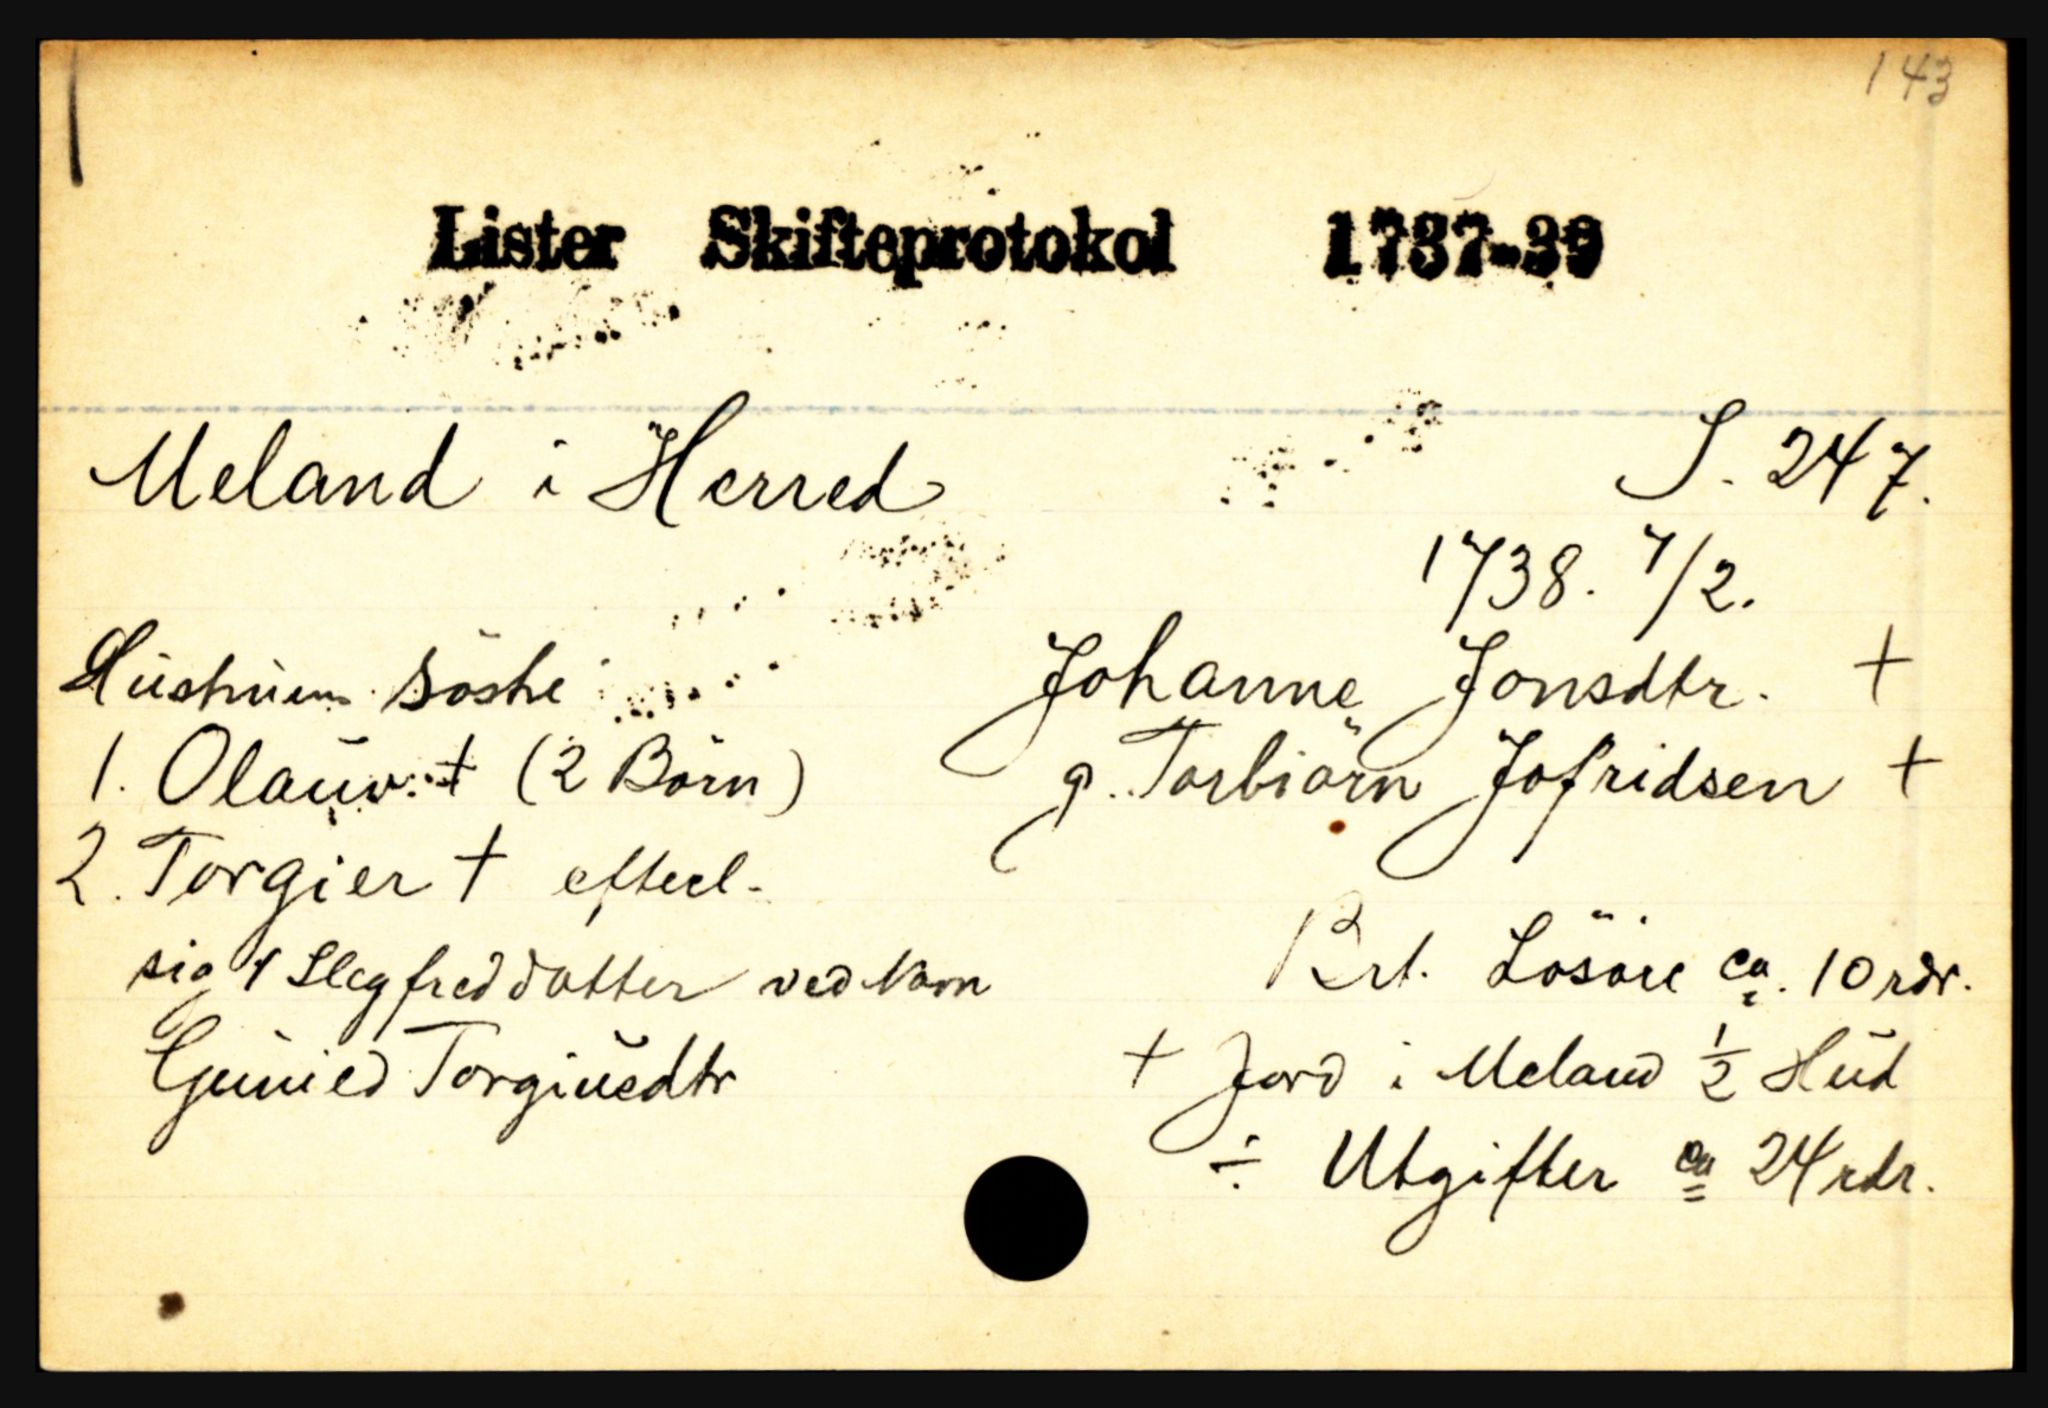 143
Lister Skifteprotokol 1737-39
Meland i Herred S. 247.
1738. 7/2.
Hustruens söskē Johanne Jonsdtr. +
1. Olauv. + (2 Börn) g. Torbiörn Jofridsen +
2. Torgier + efterl.
sig 1 Slegfreddatter ved Navn Brt. Lösöre ca. 10 rdr.
Gunied Torgiusdtr + Jord i Meland 1/2 Hud
÷ Utgifter ca 24 rdr.